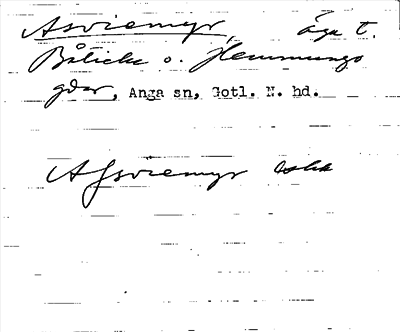 Asviemyr, äga t.
Båticke o. Hemmungs
gdar, Anga sn, Gotl. N. hd.
Asviemyr